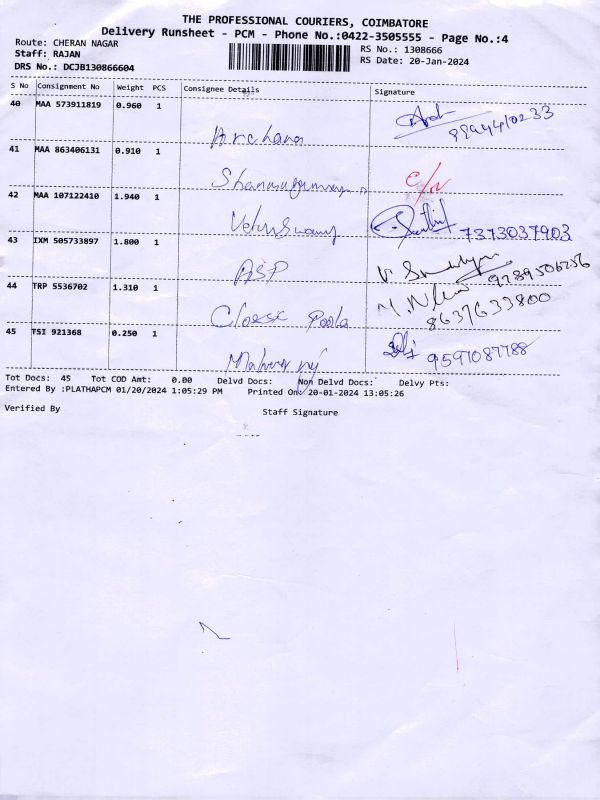 THE PROFESSIONAL COURIERS, COIMBATORE
Delivery Runsheet - PCM - Phone No.:0422-3505555 - Page No.:4
Route: CHERAN NAGAR RS No.: 1308666
Staff: RAJAN RS Date: 20-Jan-2024
DRS No.: DCJB130866604
S No Consignment No Weight PCS Consignee Details Signature
40 MAA 573911819 0.960 1
Archana 9994410233
41 MAA 863406131 0.910 1
42 MAA 107122410 1.940 1
7373037903
43 IXM 505733897 1.800 1
ASP 9289506256
44 TRP 5536702 1.310 1
8637633800
45 TSI 921368 0.250 1
9597087788
Tot Docs: 45 Tot COD Amt: 0.00 Delvd Docs: Non Delvd Docs: Delvy Pts:
Entered By :PLATHAPCM 01/20/2024 1:05:29 PM Printed On: 20-01-2024 13:05:26
Verified By Staff Signature